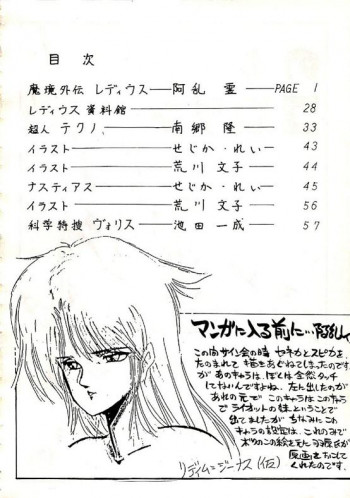 目次
魔境外伝 レディウス──阿乱 霊──PAGE 1
レディウス資料館────28
超人 テクノ.──南郷 隆──33
イラスト──せじか・れい──43
イラスト──荒川 文子──44
ナスティアス──せじか・れい──45
イラスト──荒川 文子──56
科学特捜 ヴォリス──池田 一成──57
マンガに入る前に…阿乱
この向サイン会の時 セネカとスピカを、
たのまれて 描きあぐねてしまったのです
が あのキャラは、ぼくは全然タッチ
してないんですよね、左に出したのが
あれの元で このキャラはこのキャラ
で ライオットの妹、ということで
出てましたが ちなみにこれ
キャラの設定は、これのみで
ボツのこの絵を元に
原画をおこして
くれたのです.
リディム=ジーナス(仮)